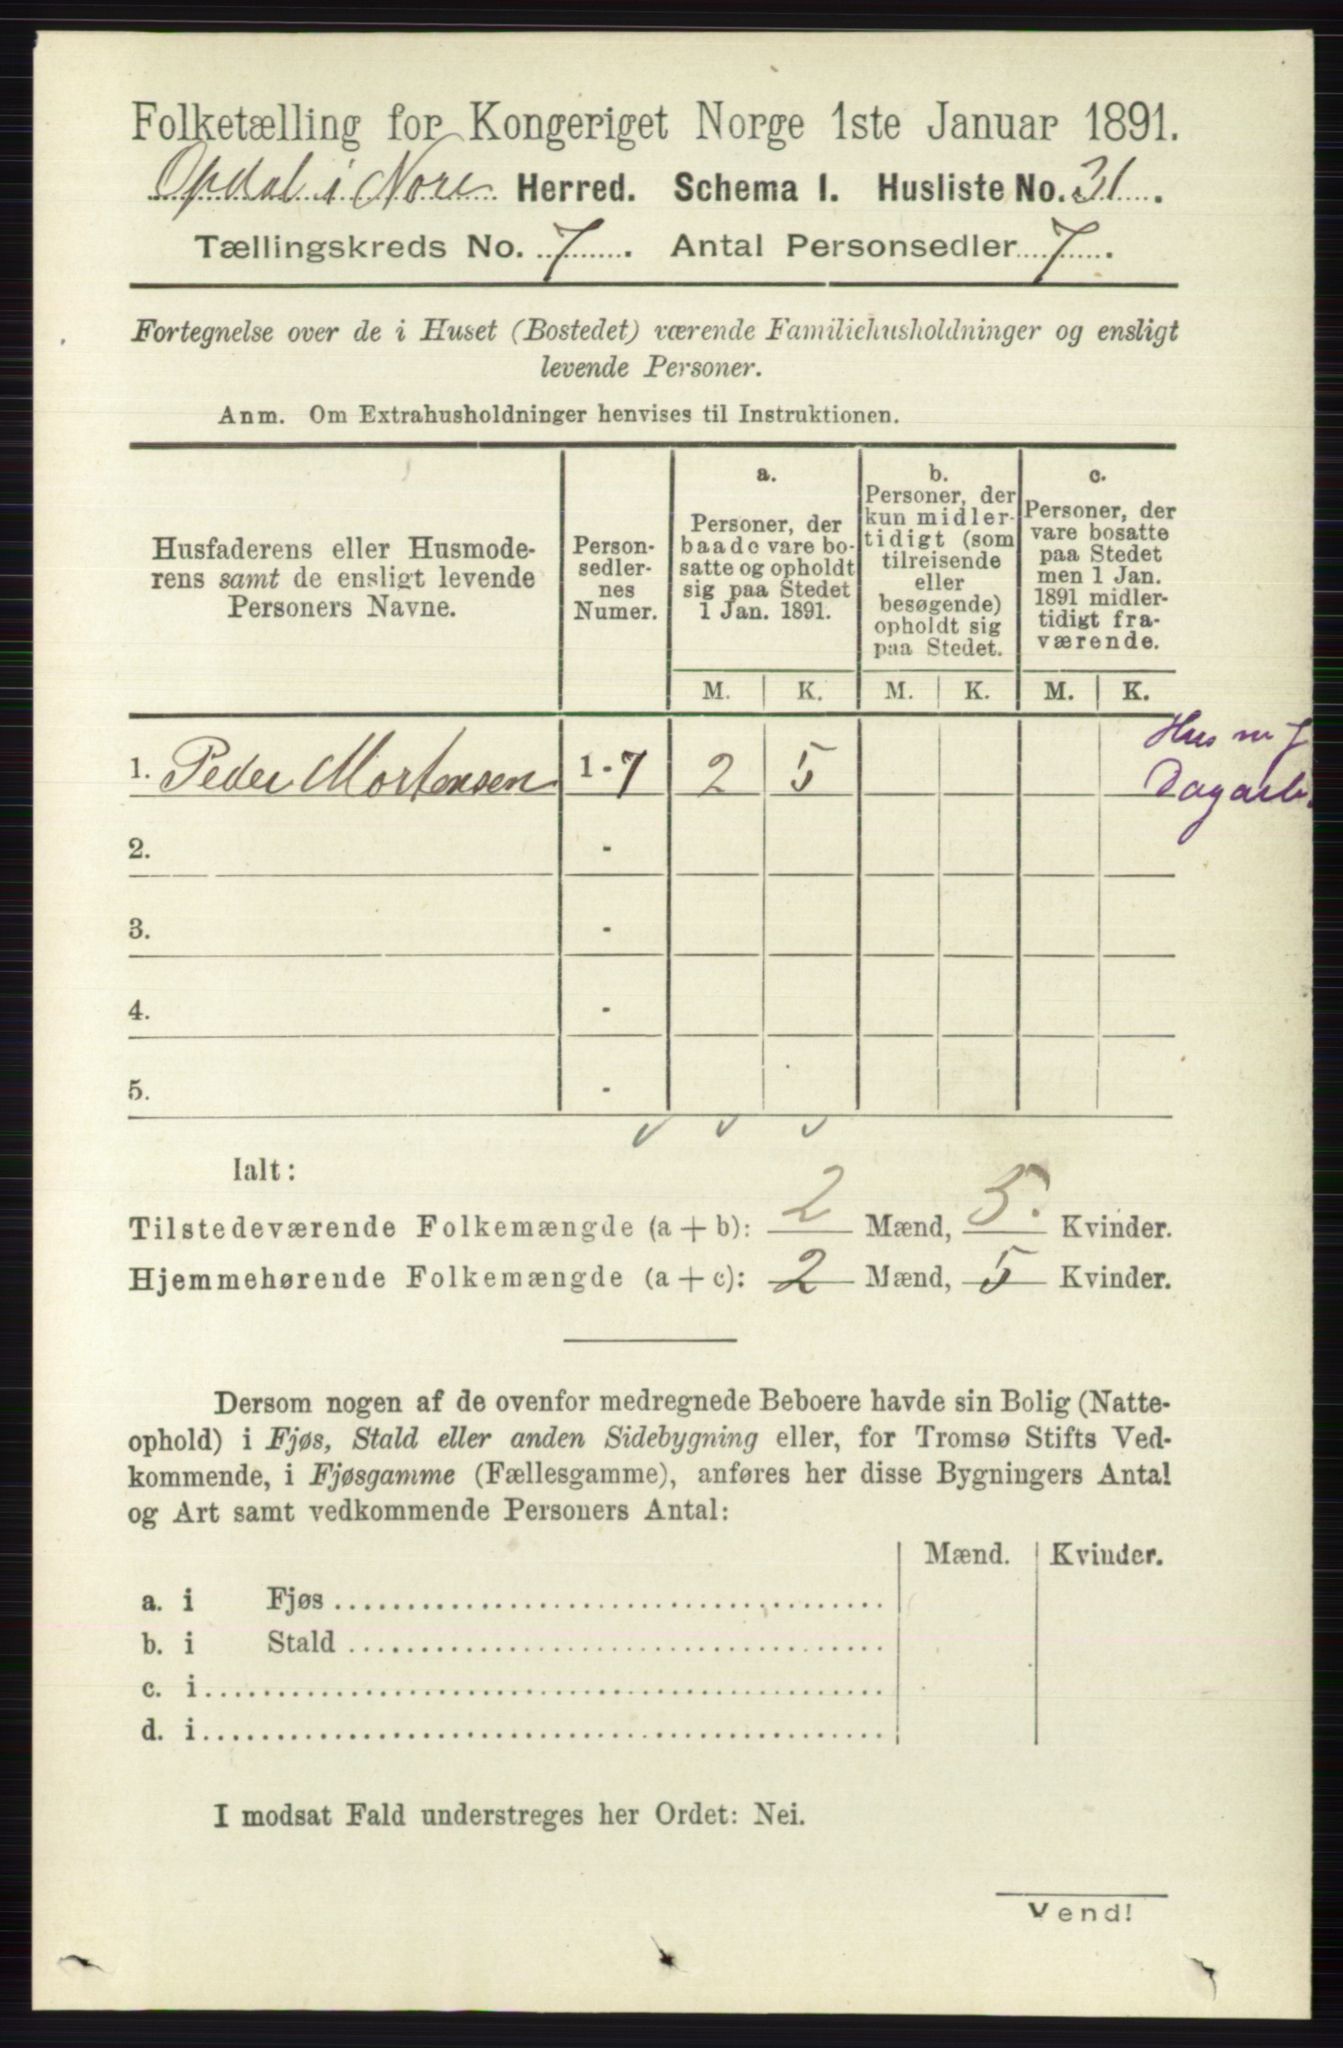 Folketælling for Kongeriget Norge 1ste Januar 1891.
Opdal i Nore Herred. Schema I. Husliste No. 31.
Tællingskreds No. 7. Antal Personsedler 7.
Fortegnelse over de i Huset (Bostedet) værende Familiehusholdninger og ensligt
levende Personer.
Anm. Om Extrahusholdninger henvises til Instruktionen.
Husfaderens eller Husmode-
rens samt de ensligt levende
Personers Navne.
Person-
sedler-
nes
Numer.
a.
Personer, der
baade vare bo-
satte og opholdt
sig paa Stedet
1 Jan. 1891.
b.
Personer, der
kun midler-
tidigt (som
tilreisende
eller
besøgende)
opholdt sig
paa Stedet.
c.
Personer, der
vare bosatte
paa Stedet
men 1 Jan.
1891 midler-
tidigt fra-
værende.
M. K. M. K. M. K.
Hus m J
1. Peder Mortensen 1 - 7 2 5
Dagarb.
2. -
3. -
4. -
5. -
Ialt:
Tilstedeværende Folkemængde (a + b): 2 Mænd, 5. Kvinder.
Hjemmehørende Folkemængde (a + c): 2 Mænd, 5 Kvinder.
Dersom nogen af de ovenfor medregnede Beboere havde sin Bolig (Natte-
ophold) i Fjøs, Stald eller anden Sidebygning eller, for Tromsø Stifts Ved-
kommende, i Fjøsgamme (Fællesgamme), anføres her disse Bygningers Antal
og Art samt vedkommende Personers Antal:
Mænd. Kvinder.
a. i Fjøs
b. i Stald
c. i
d. i
I modsat Fald understreges her Ordet: Nei.
Vend!